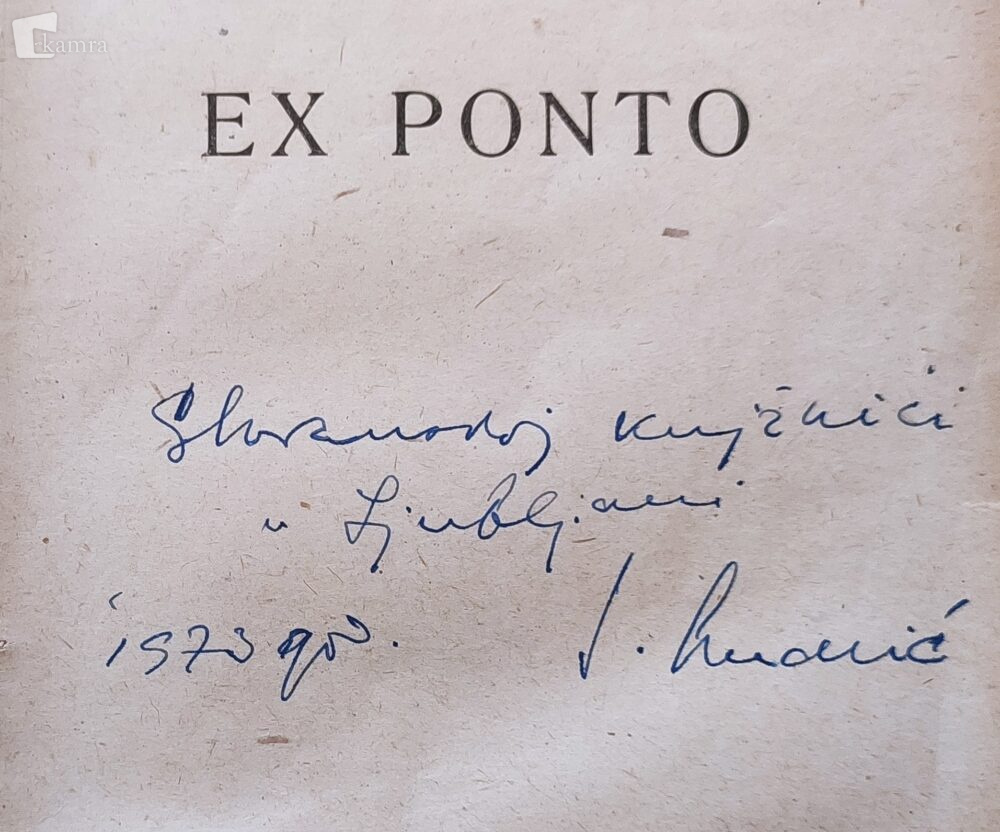 kamra
EX PONTO
Slovanskoj knjižnici
u Ljubljani
1973 god. I. Andrić